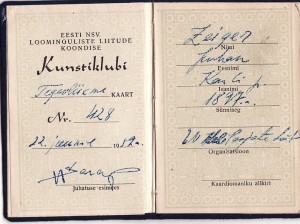 EESTI NSV
LOOMINGULISTE LIITUDE
KOONDISE
Kunstiklubi
Tegevliikme KAART
Nr. 428
22. 19
Juhatuse esimees
Zeiger
Nimi
Juhan
Eesnimi
Karli p.
Isanimi
1897.a.
Sünniaeg
Organisatsioon
Kaardiomaniku allkiri